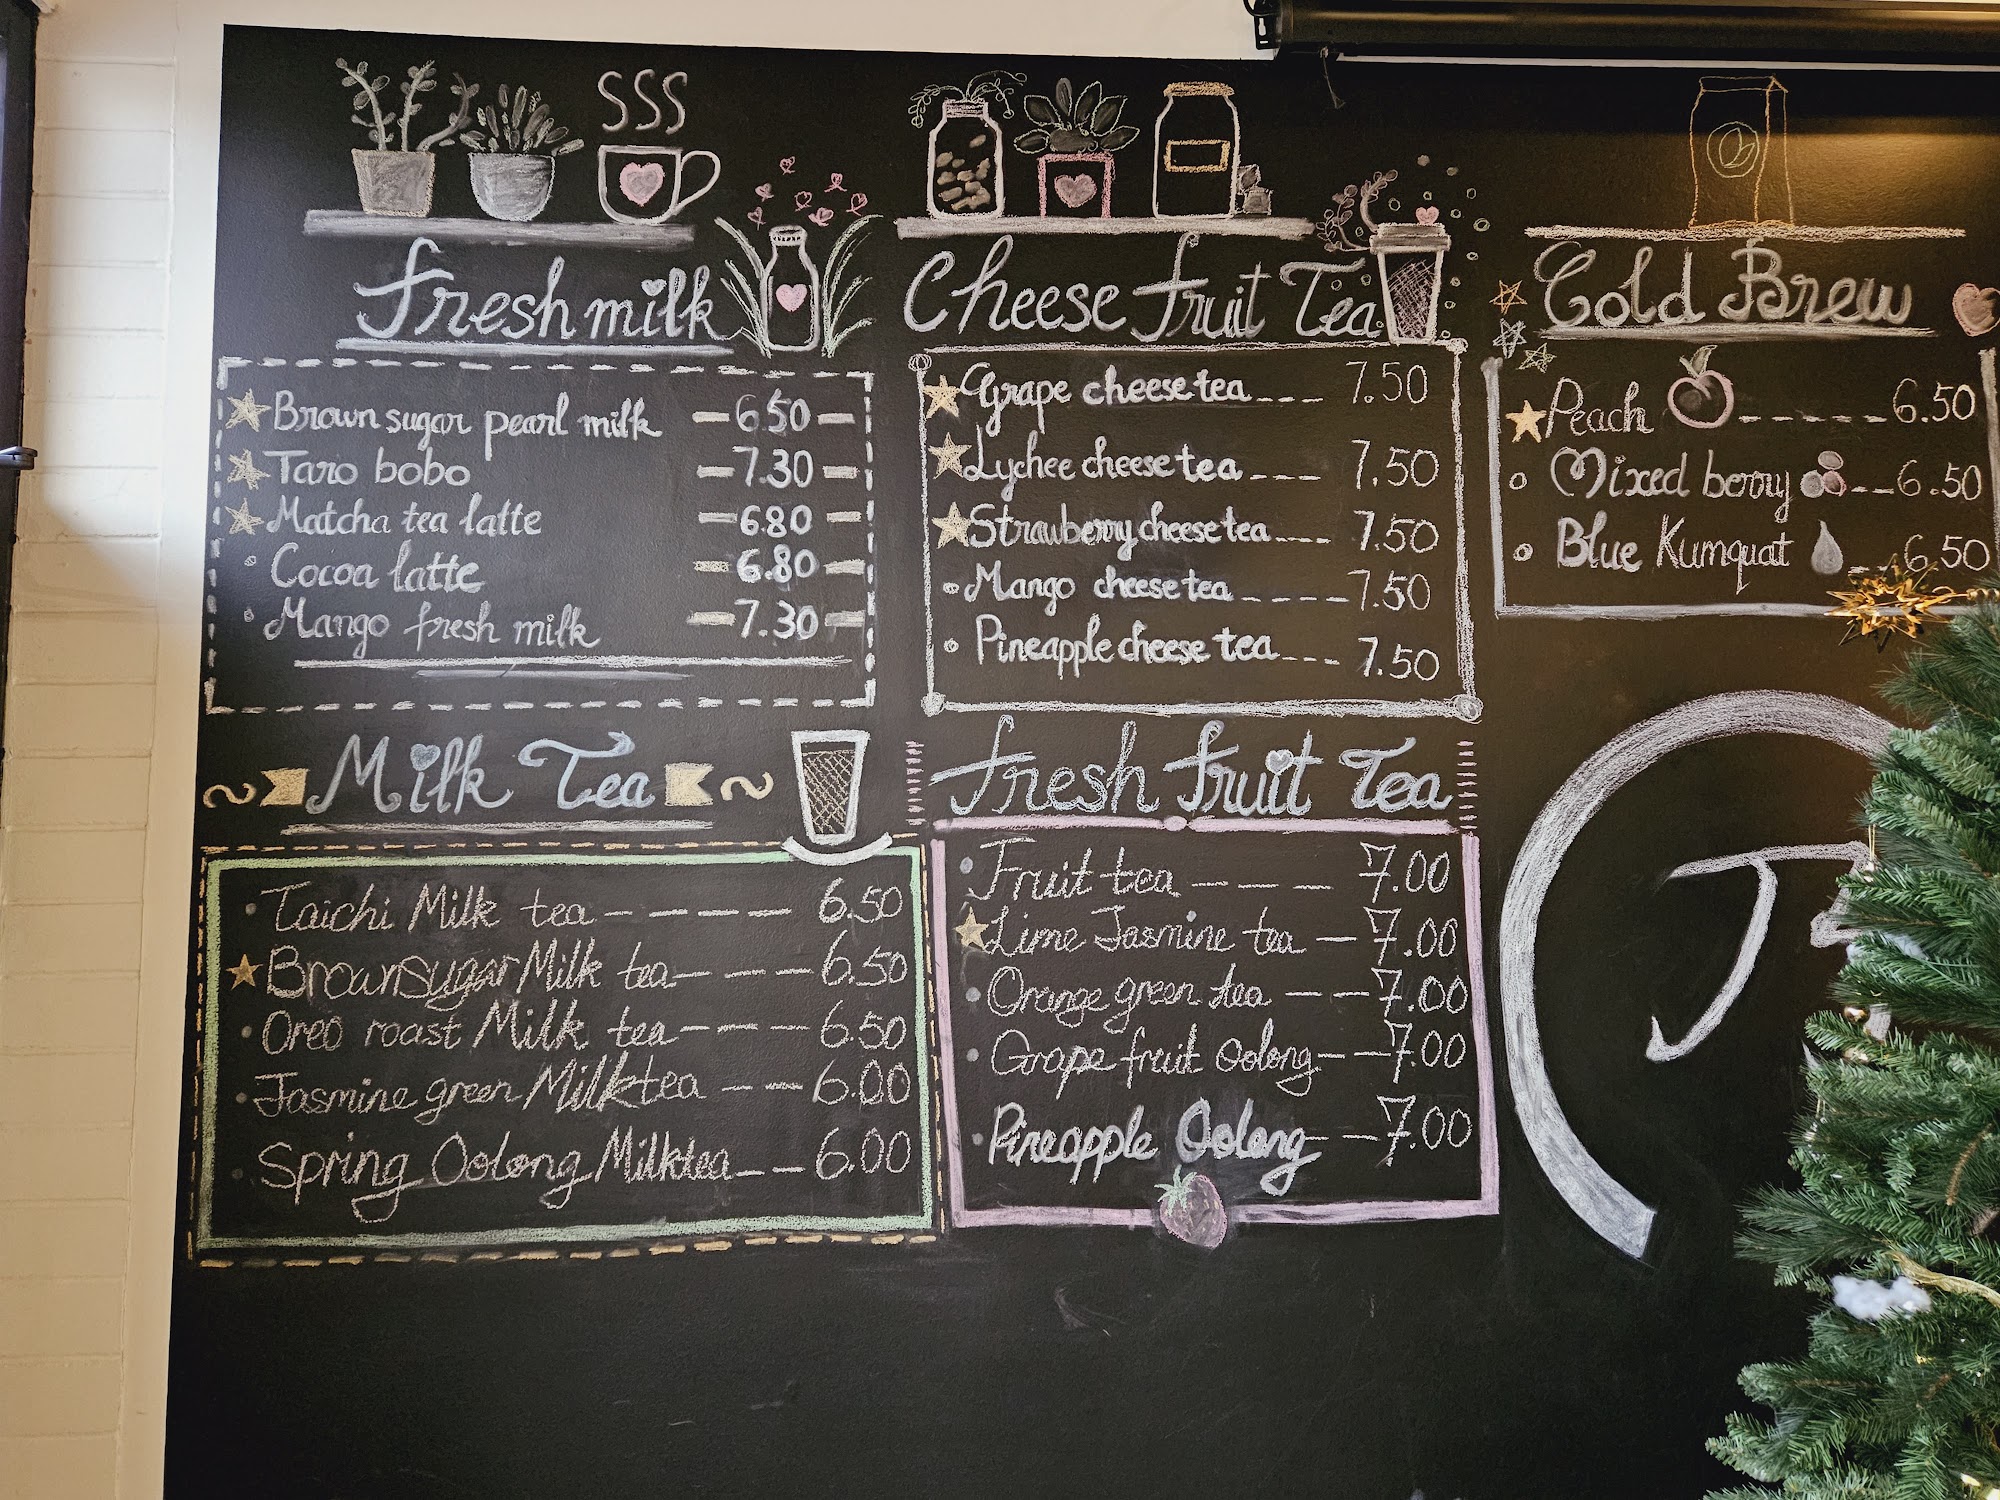 Fresh milk
Brown sugar pearl milk 6.50
Taro bobo 7.30
Matcha tea latte 6.80
Cocoa latte 6.80
Mango fresh milk 7.30
Cheese Fruit Tea
Grape cheese tea 7.50
Lychee cheese tea 7.50
Strawberry cheese tea 7.50
Mango cheese tea 7.50
Pineapple cheese tea 7.50
Cold Brew
Peach 6.50
Mixed berry 6.50
Blue Kumquat 6.50
Milk Tea
Taichi Milk tea 6.50
Brown sugar Milk tea 6.50
Oreo roast Milk tea 6.50
Jasmine green Milk tea 6.00
Spring Oolong Milktea 6.00
Fresh Fruit Tea
Fruit tea 7.00
Lime Jasmine tea 7.00
Orange green tea 7.00
Grape fruit Oolong 7.00
Pineapple Oolong 7.00